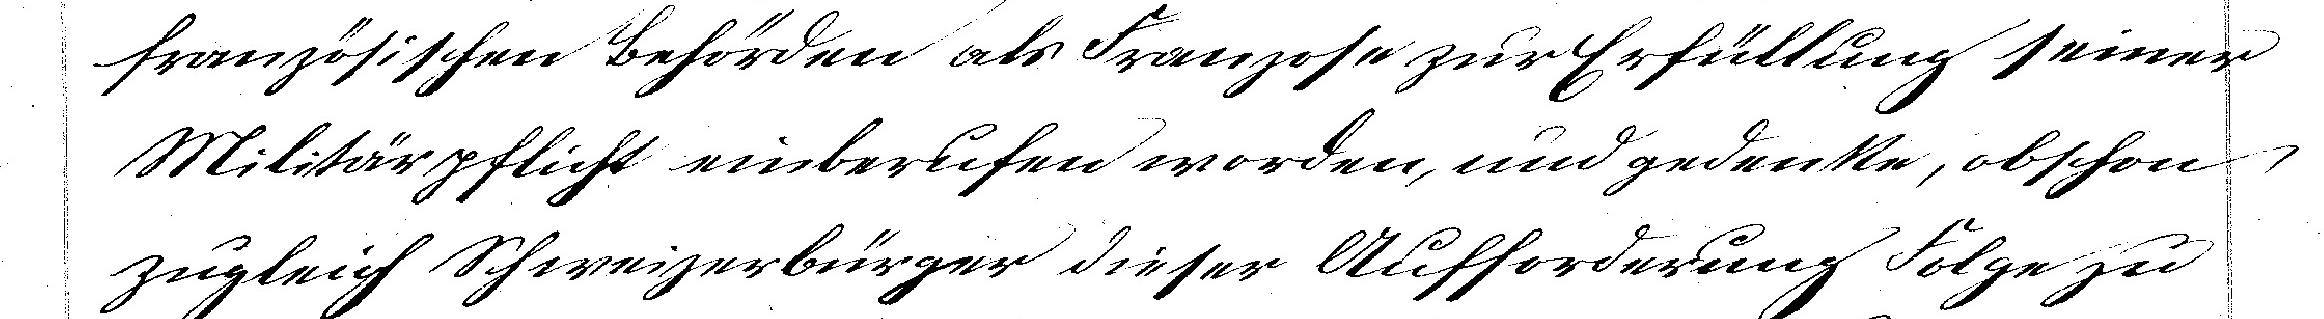 französischen Behörden als Franzose zur Erfüllung seiner
Militärpflicht einberufen worden, und gedenke, obschon
zugleich Schweizerbürger dieser Aufforderung Folge zu